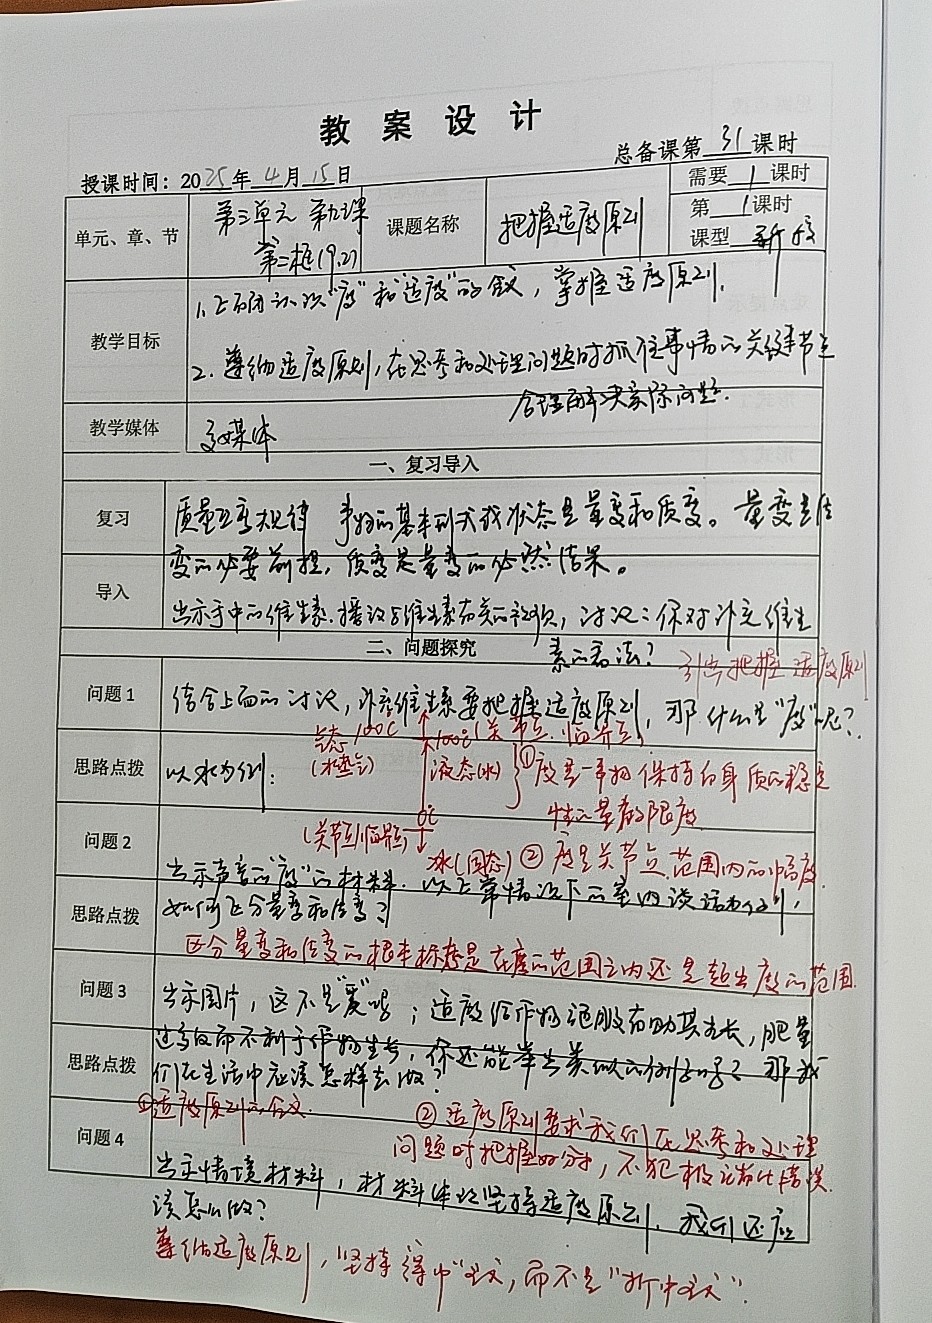 教案设计
总备课第 31 课时
授课时间：2025年 4 月 15 日
需要 1 课时
单元、章、节
第三单元 第九课
第二框(9.2)
课题名称
把握适度原则
第 1 课时
课型 新授
教学目标
1、正确认识"度"和"适度"的含义，掌握适度原则。
2、遵循适度原则，在思考和处理问题时抓住事情的关键节点
合理解决实际问题。
教学媒体
多媒体
一、复习导入
复习
质量互变规律 事物的基本形式或状态是量变和质变。量变是质
变的必要前提，质变是量变的必然结果。
导入
出示手中的维生素、播放与维生素有关的视频，讨论：你对补充维生
素的看法？
引出把握适度原则
二、问题探究
问题1
结合上面的讨论，补充维生素要把握适度原则，那什么是"度"呢？
思路点拨
以水为例：
气态 100℃
(水蒸气)
100℃(关节点、临界点)
液态(水)
0℃
(关节点、临界点)
冰(固态)
①度是事物保持自身质的稳定
性的量的限度
②度是关节点范围内的幅度.
问题2
出示声音的"度"的材料. 以正常情况下的室内谈话为例，
如何区分量变和质变？
思路点拨
区分量变和质变的根本标志是在度的范围之内还是超出度的范围.
问题3
出示图片，这不是"爱"吗；适度给作物施肥有助其生长，肥量
过多反而不利于作物生长，你还能举出类似的例子吗？那我
们在生活中应该怎样去做？
思路点拨
①适度原则的含义.
②适度原则要求我们在思考和处理
问题时把握好分寸，不犯极端化错误.
问题4
出示情境材料，材料体现坚持适度原则，我们还应
该怎么做？
遵循适度原则，坚持"得中"主义，而不是"折中主义".